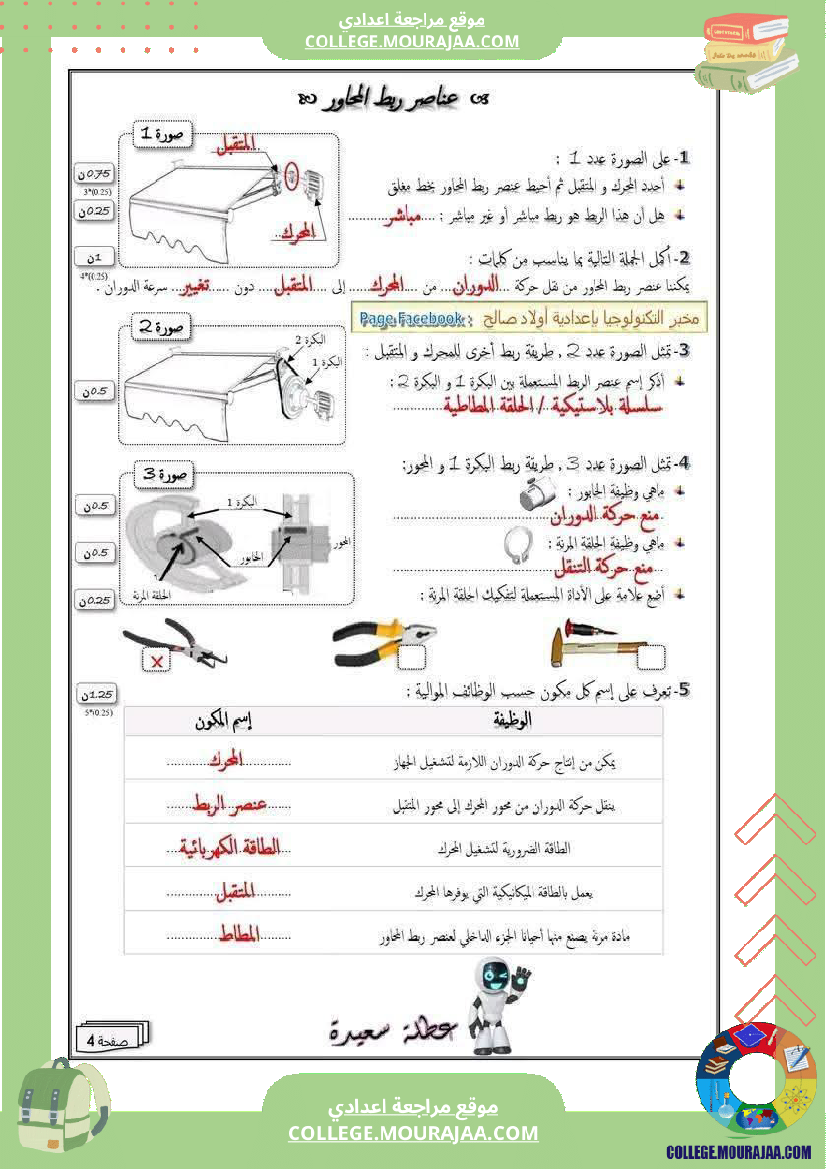 موقع مراجعة اعدادي
COLLEGE.MOURAJAA.COM
عناصر ربط المحاور
صورة 1
المتقبل
المحرك
1- على الصورة عدد 1 :
0.75ن
3*(0.25)
أحدد المحرك و المتقبل ثم أحيط عنصر ربط المحاور بخط مغلق
0.25ن
هل أن هذا الربط هو ربط مباشر أو غير مباشر : ....مباشر............
1ن
4*(0.25)
2- أكمل الجملة التالية بما يناسب من كلمات :
يمكننا عنصر ربط المحاور من نقل حركة ...الدوران... من ...المحرك... إلى ...المتقبل... دون ...تغيير... سرعة الدوران .
مخبر التكنولوجيا بإعدادية أولاد صالح Page Facebook :
صورة 2
البكرة 2
البكرة 1
3- تمثل الصورة عدد 2 , طريقة ربط أخرى للمحرك و المتقبل :
0.5ن
أذكر إسم عنصر الربط المستعملة بين البكرة 1 و البكرة 2 :
سلسلة بلاستيكية / الحلقة المطاطية
4- تمثل الصورة عدد 3 , طريقة ربط البكرة 1 و المحور:
صورة 3
البكرة 1
الخابور
المحور
الحلقة المرنة
0.5ن
ماهي وظيفة الخابور :
منع حركة الدوران
0.5ن
ماهي وظيفة الحلقة المرنة :
منع حركة التنقل
0.25ن
أضع علامة على الأداة المستعملة لتفكيك الحلقة المرنة :
x
1.25ن
5*(0.25)
5- تعرف على إسم كل مكون حسب الوظائف الموالية :
الوظيفة إسم المكون
يمكن من إنتاج حركة الدوران اللازمة لتشغيل الجهاز المحرك
ينقل حركة الدوران من محور المحرك إلى محور المتقبل عنصر الربط
الطاقة الضرورية لتشغيل المحرك الطاقة الكهربائية
يعمل بالطاقة الميكانيكية التي يوفرها المحرك المتقبل
مادة مرنة يصنع منها أحيانا الجزء الداخلي لعنصر ربط المحاور المطاط
عطلة سعيدة
صفحة 4
موقع مراجعة اعدادي
COLLEGE.MOURAJAA.COM
COLLEGE.MOURAJAA.COM